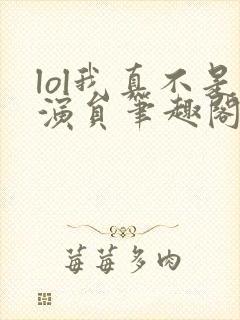 lol我真不是
演员笔趣阁
莓莓多肉